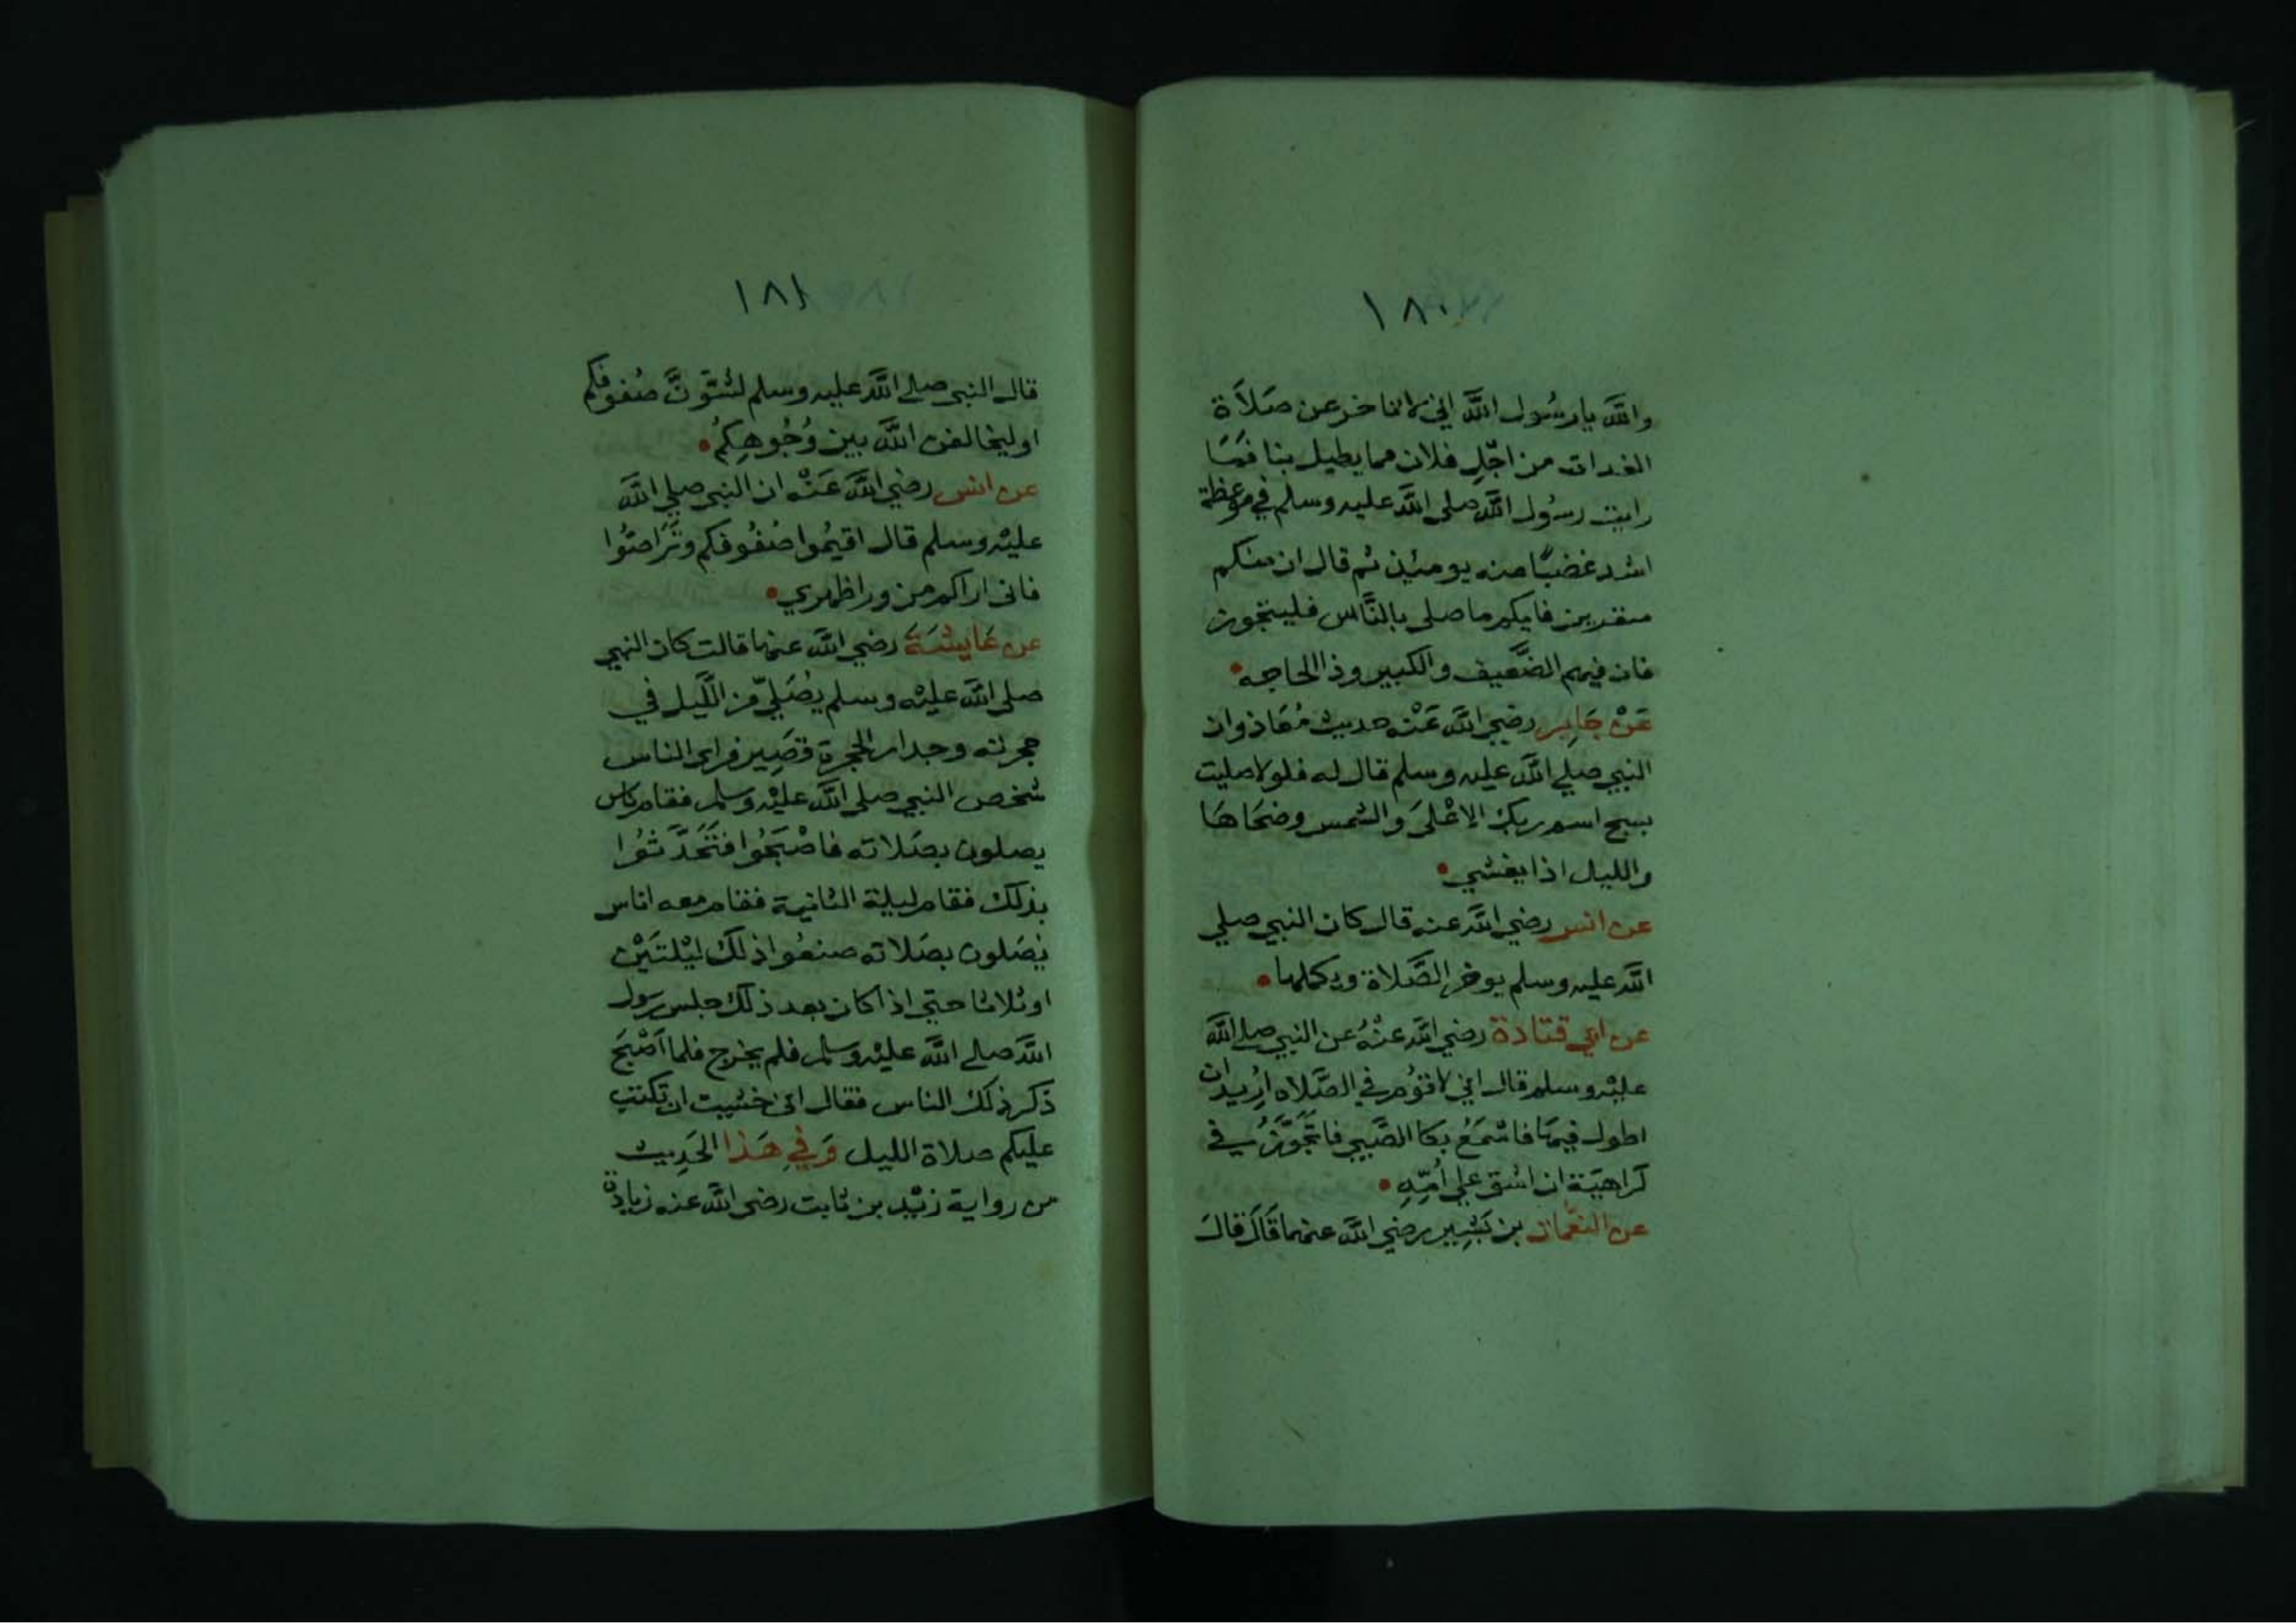 ١٨٠
والله يا رسُول الله اني لاتاخر عن صَلَاة
الغدات من اجّلِ فلان مما يطيل بنا فمَا
رايت رسُول الله صلى الله عليه وسلم في موعظة
اشد غضبًا منه يومئذ ثم قال ان منكم
منفرين فايكم ما صلى بالنَّاس فليتجوز
فان فيهم الضَّعيف والكبير وذا الحاجه
عَنْ جَابِر رضي الله عَنْه حديث مُعَاذ وان
النبي صلي الله عليه وسلم قال له فلولا صليت
بسبح اسم ربك الاعْلىَ والشمس وضحَاهَا
والليل اذا يغشي
عن انس رضي الله عنه قال كان النبي صلي
الله عليه وسلم يوخر الصَّلاة ويكملها
عن ابي قتادة رضي الله عنْهُ عن النبي صلے الله
عليْه وسلم قال اني لاقوُم في الصَّلاه ارُيد ان
اطول فيهَا فاسْمَعُ بكا الصَّبي فاتجَوَّزُ في
كراهيَة ان اشق علي اُمِّهِ
عن النعْمان بن بَشِير رضي الله عنهما قَالَ قالَ
١٨١
قال النبي صلے الله عليه وسلم لتسَوُّنَّ صُفوفكم
او ليخالفن الله بين وُجُوهِكمُ
عن انس رضي الله عَنْه ان النبي صلي الله
عليْه وسلم قال اقيمُوا صُفُوفكم وتَرَاصّوُا
فانى اراكم من ورا ظهري
عن عَايشَة رضي الله عنها قالت كان النبي
صلى الله عليْه وسلم يُصَليّ من اللَّيل في
حجرته وجدار الحجرة قصَير فراى الناس
شخص النبي صلى الله عليْه وسلم فقام ناس
يصلون بصَلاته فاصْبَحُوا فتَحَدَّثوُا
بذلك فقام ليلة الثانية فقام معه اناس
يُصَلون بصَلاته صنعُوا ذلك ليْلتَيْن
او ثلاثا حتي اذا كان بعد ذلك جلس رسول
الله صلے الله عليْه وسلم فلم يخرج فلما اَصْبَحَ
ذكر ذلك الناس فقال اني خشيت ان تكتب
عليكم صلاة الليل وَفي هَذا الحَدِيث
من رواية زيْد بن ثابت رضي الله عنه زيادة